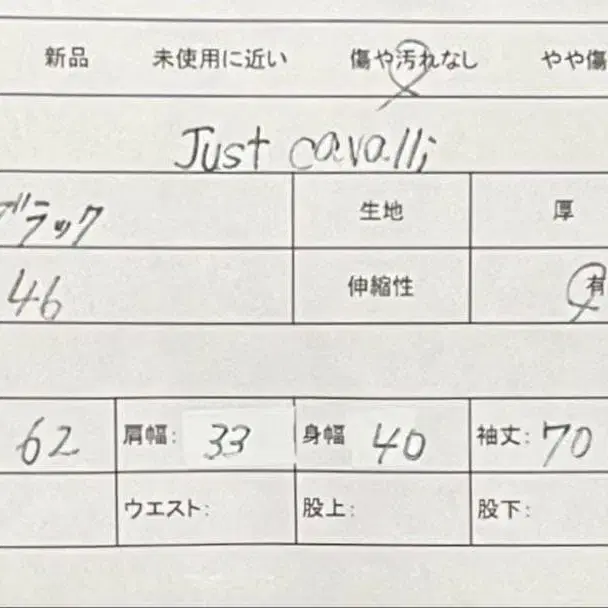 新品 未使用に近い 傷や汚れなし やや傷
Just cavalli
ブラック 生地 厚
46 伸縮性 有
62 肩幅: 33 身幅 40 袖丈: 70
ウエスト: 股上: 股下: